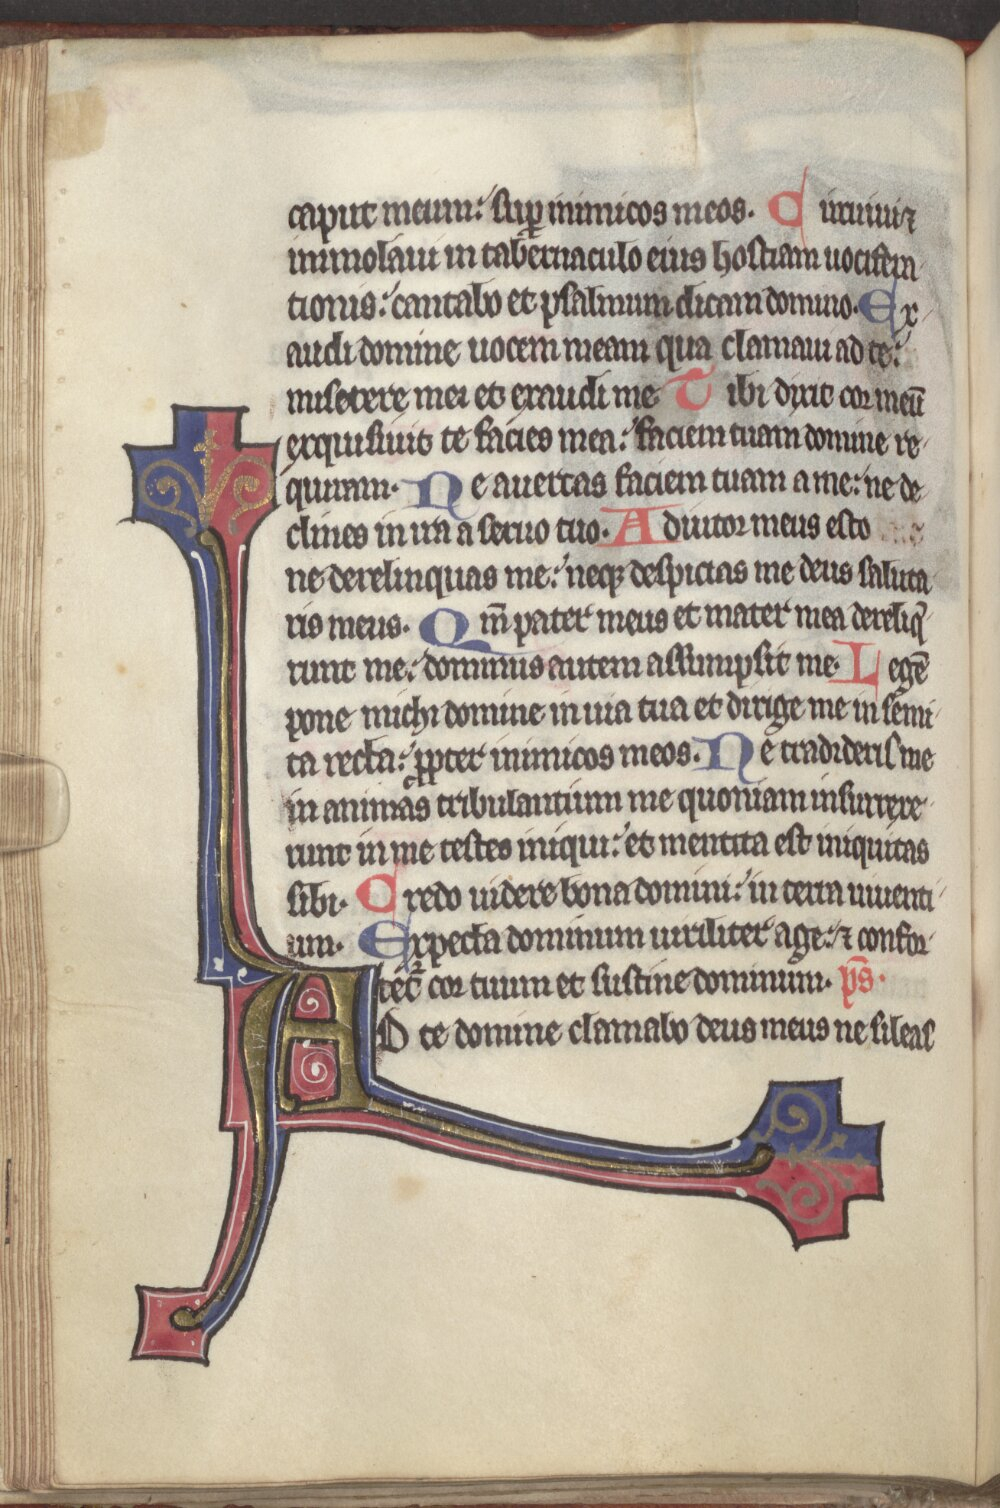 caput meum: sup̱ inimicos meos. Circuiui ⁊
immolaui in tabernaculo eius hostiam uocifera
tionis: cantabo et psalmum dicam domino. Ex
audi domine uocem meam qua clamaui ad te:
miserere mei et exaudi me Tibi dixit cor meū
exquisiuit te facies mea: faciem tuam domine re
quiram. Ne auertas faciem tuam a me: ne de
clines in ira a seruo tuo. Adiutor meus esto
ne derelinquas me: neqꝫ despicias me deus saluta
ris meus. Qm̄ pater meus et mater mea dereliq̄
runt me: dominus autem assumpsit me. Legē
pone michi domine in uia tua et dirige me in semi
ta recta: ꝓpter inimicos meos. Ne tradideris me
in animas tribulantium me quoniam insurrexe
runt in me testes iniqui: et mentita est iniquitas
sibi. Credo uidere bona domini: in terra uiuenti
um. Expecta dominum uiriliter age: ⁊ confor
tet᷑ cor tuum et sustine dominum. p̄s.
AD te domine clamabo deus meus ne sileas